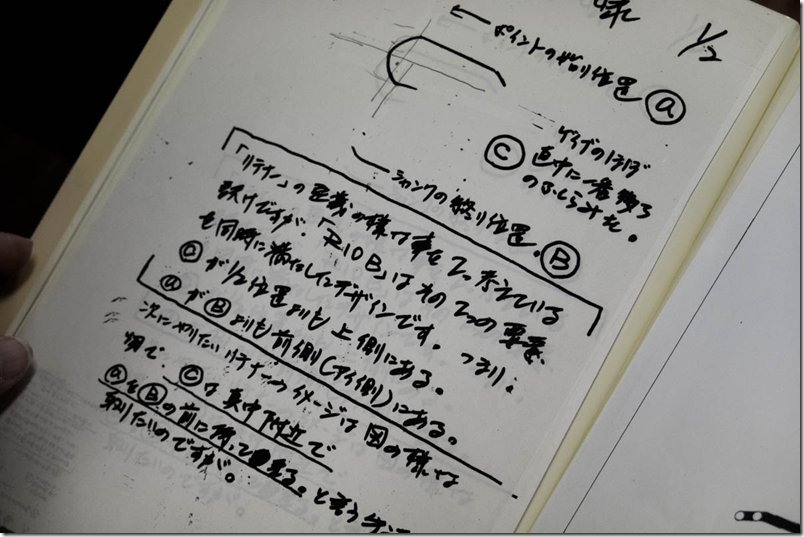 様
1/2
ポイントの始り位置 ⓐ
ゲイブのほぼ
Ⓒ 真中に一番外る
のふくらみを。
シャンクの終り位置。Ⓑ
「リテナー」の定義の様な事を2つ考えている
訳けですが、「R10B」はその2つの要素
を同時に満たしたデザインです。つまり:
Ⓒが1/2位置よりも上側にある。
ⓐがⒷよりも前側(アイ側)にある。
次にやりたいリテナーのイメージは図の様な
物で、Ⓒは真中附近で
ⓐをⒷの前に持って来る。と言う
取りたいのですが。